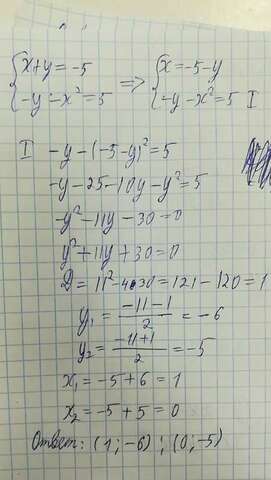 {x+y=-5 => {x=-5-y
{-y-x²=5 {-y-x²=5 I
I -y-(-5-y)²=5
-y-25-10y-y²=5
-y²-11y-30=0
y²+11y+30=0
D=11²-4·30=121-120=1
y₁=(-11-1)/2=-6
y₂=(-11+1)/2=-5
x₁=-5+6=1
x₂=-5+5=0
Ответ: (1;-6);(0;-5)